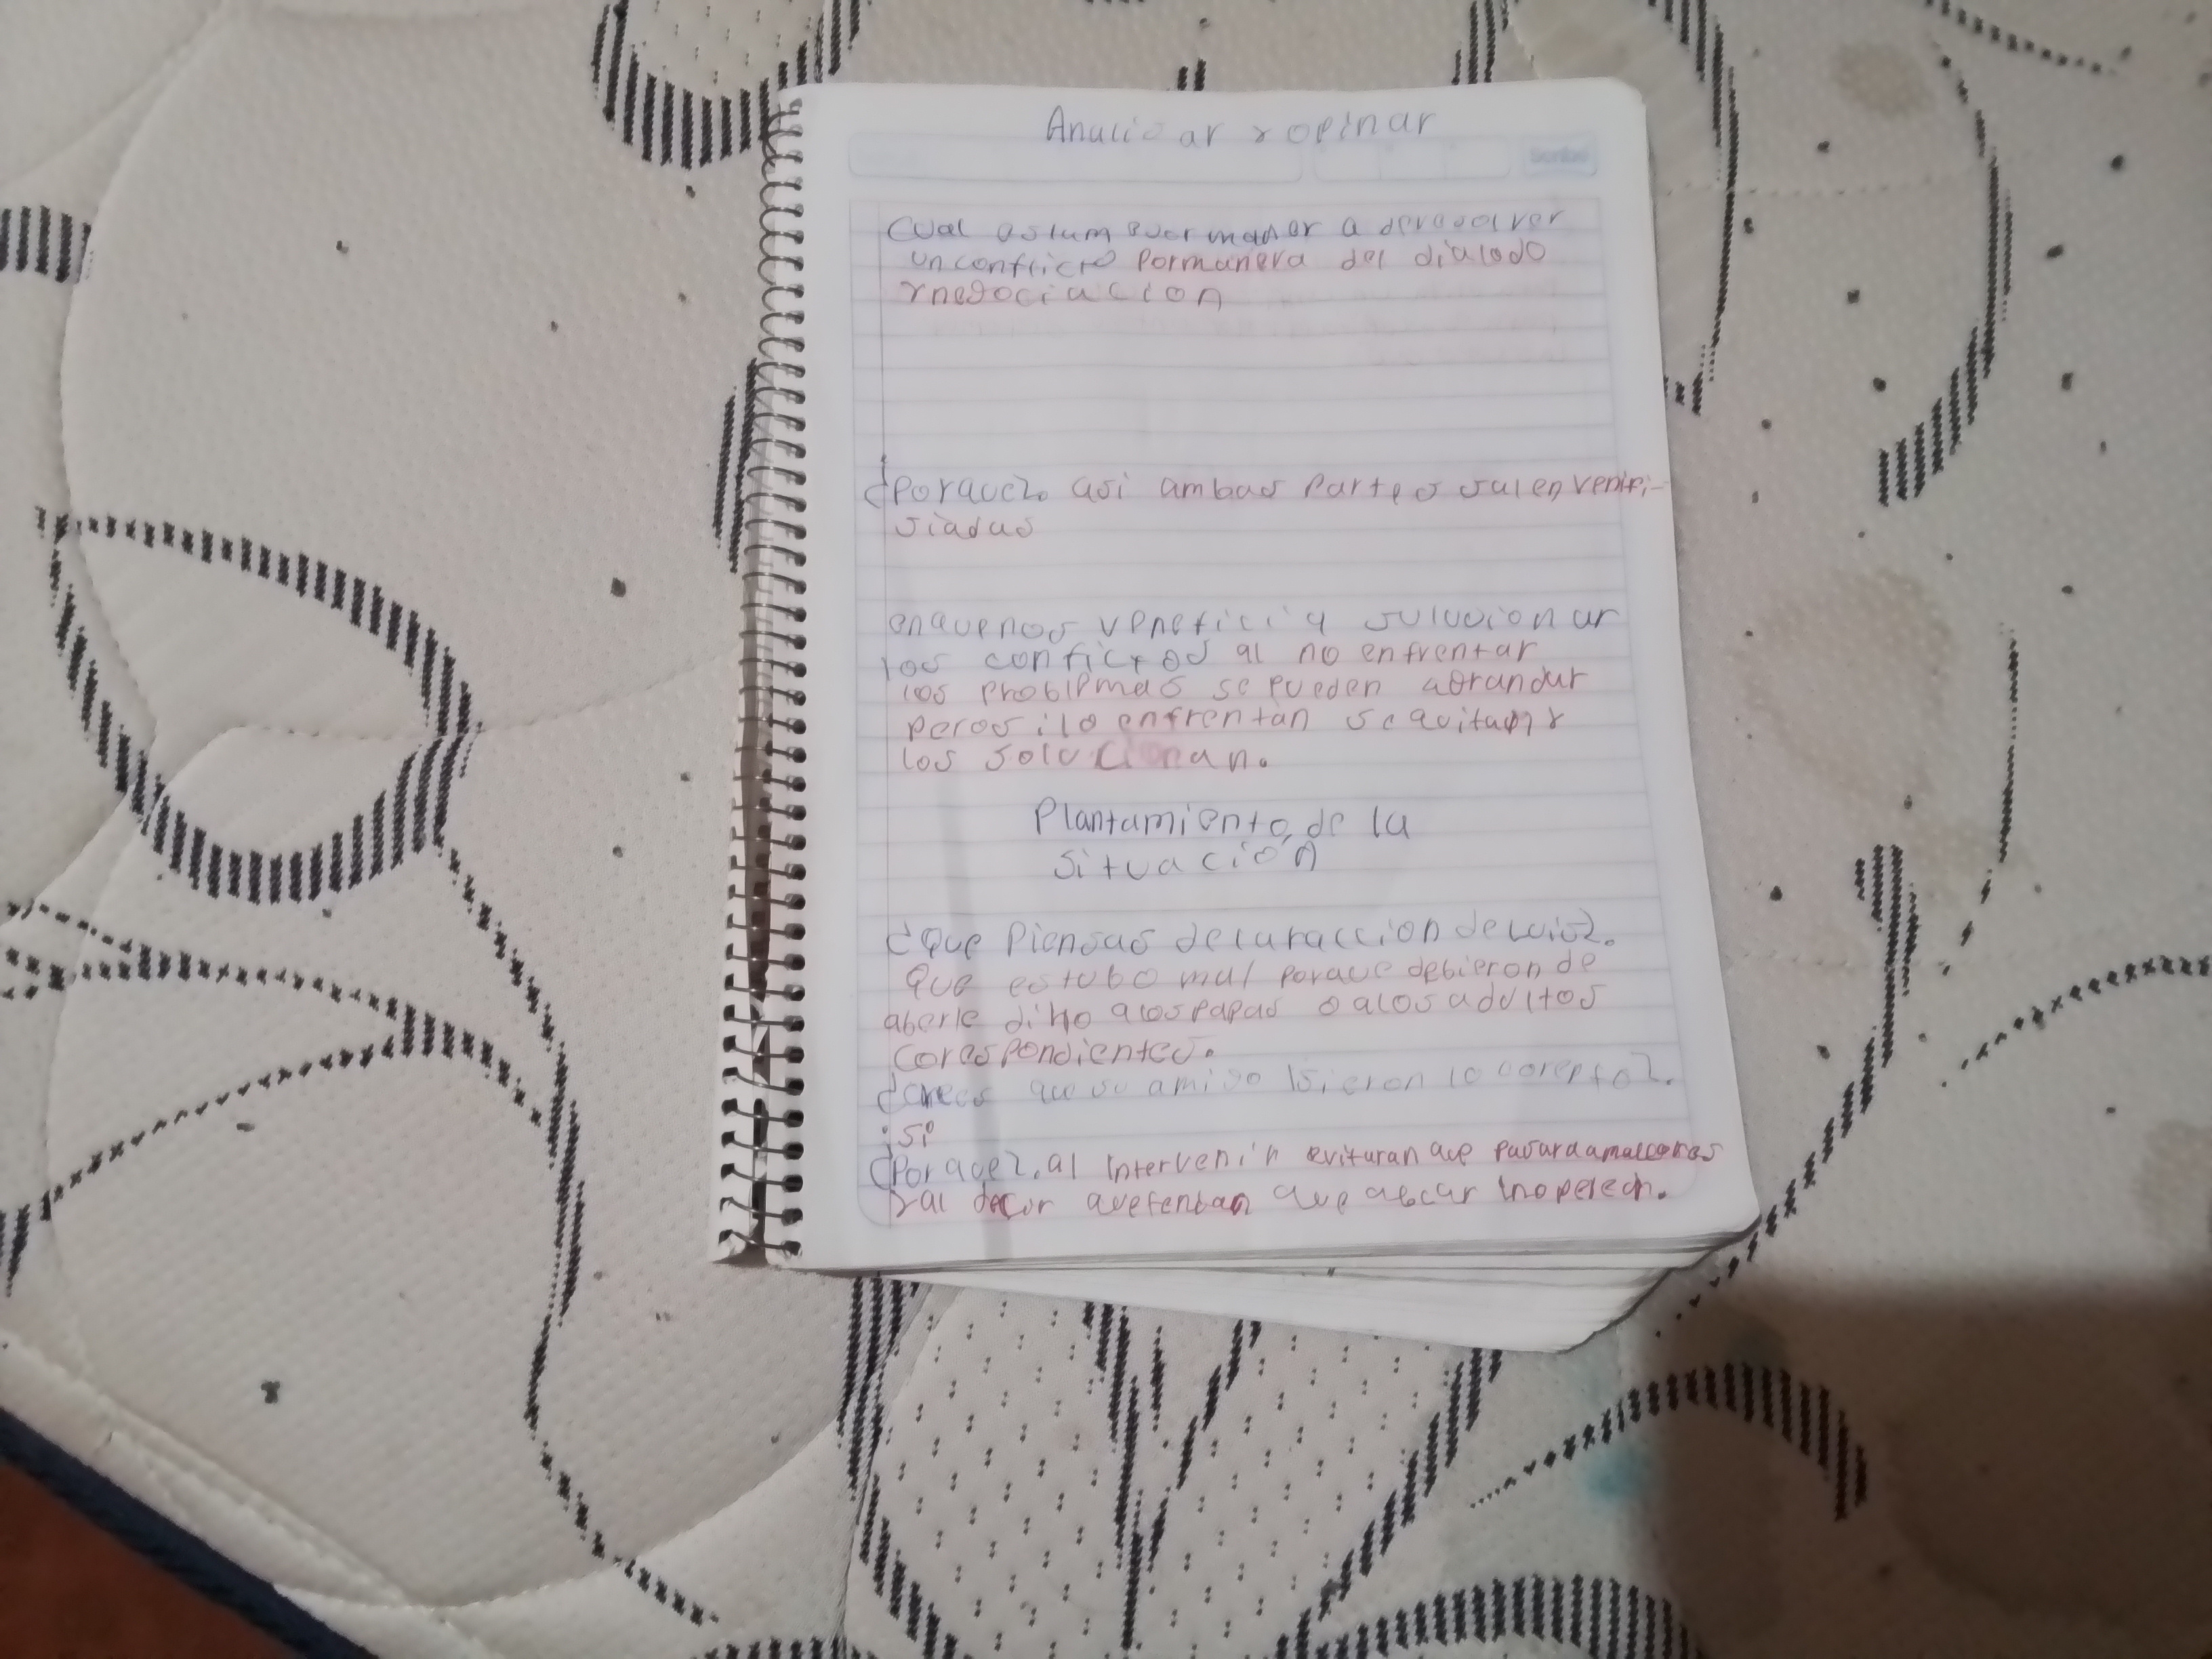 Analizar y opinar
Cual es lam ejor maner a deresolver
un conflicto Pormanera del dialodo
y negociacion
¿Porque? asi ambas partes salen venefi-
siadas
enquenos venefici a solucionar
los conflictos al no enfrentar
los problemas se pueden agrandar
perosilo enfrentan se quitan y
los solucionan.
Plantamiento de la
situación
¿Que Piensas delaraccion deluis?.
Que estubo mal porque debieron de
aberle diho alospapas o alosadultos
corespondientes.
¿crees que su amigo isieron lo corepto?.
¡si
¿Porque?. al intervenir evituran que pasara
y al decir quetenian que no peleen.